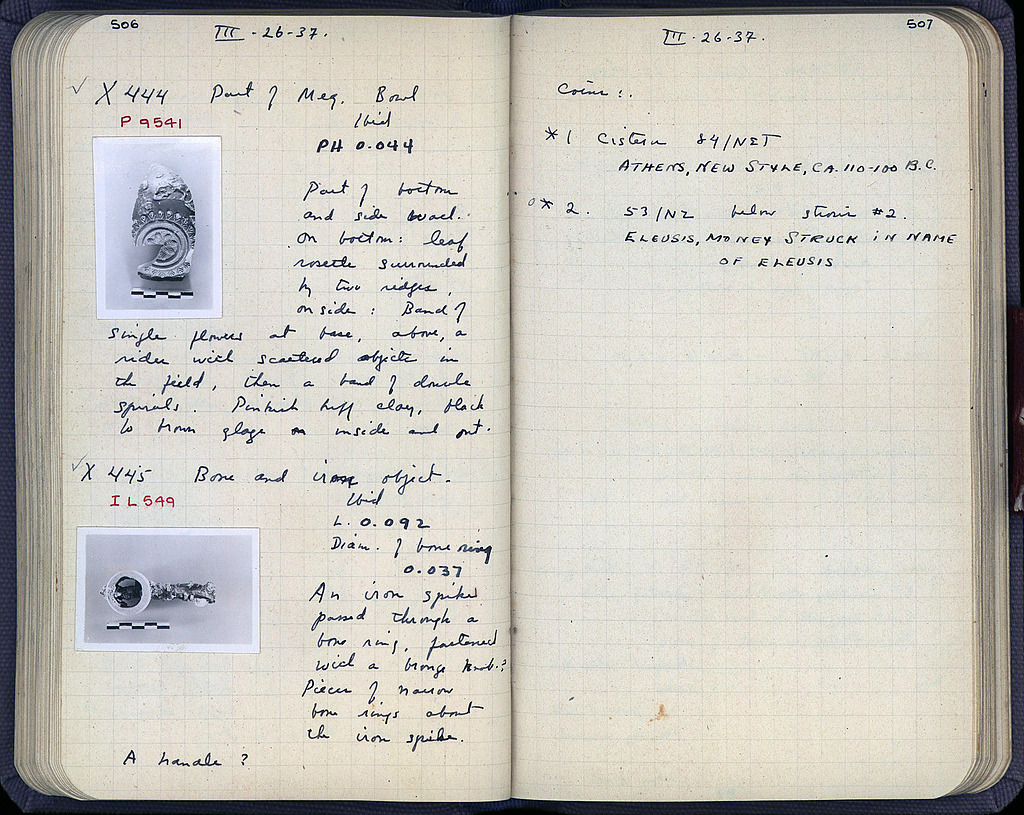 506
III - 26-37.
✓ X 444 Part of Meg. Bowl
P 9541
Ibid
PH 0.044
Part of bottom
and side wall.
On bottom: leaf
rosette surrounded
by two ridges,
on side: Band of
single flowers at base, above, a
rider with scattered objects in
the field, then a band of double
spirals. Pinkish buff clay, black
to brown glaze on inside and out.
✓ X 445 Bone and iron object.
IL 549
Ibid
L. 0.092
Diam. of bone ring
0.037
An iron spike
passed through a
bone ring, fastened
with a bronze knob?
Pieces of narrow
bone rings about
the iron spike.
A handle?
507
III - 26-37.
Coins:.
* 1 Cistern 84/ΝΣΤ
ATHENS, NEW STYLE, CA. 110-100 B.C.
* 2. 53/ΝΖ below strosis #2.
ELEUSIS, MONEY STRUCK IN NAME
OF ELEUSIS